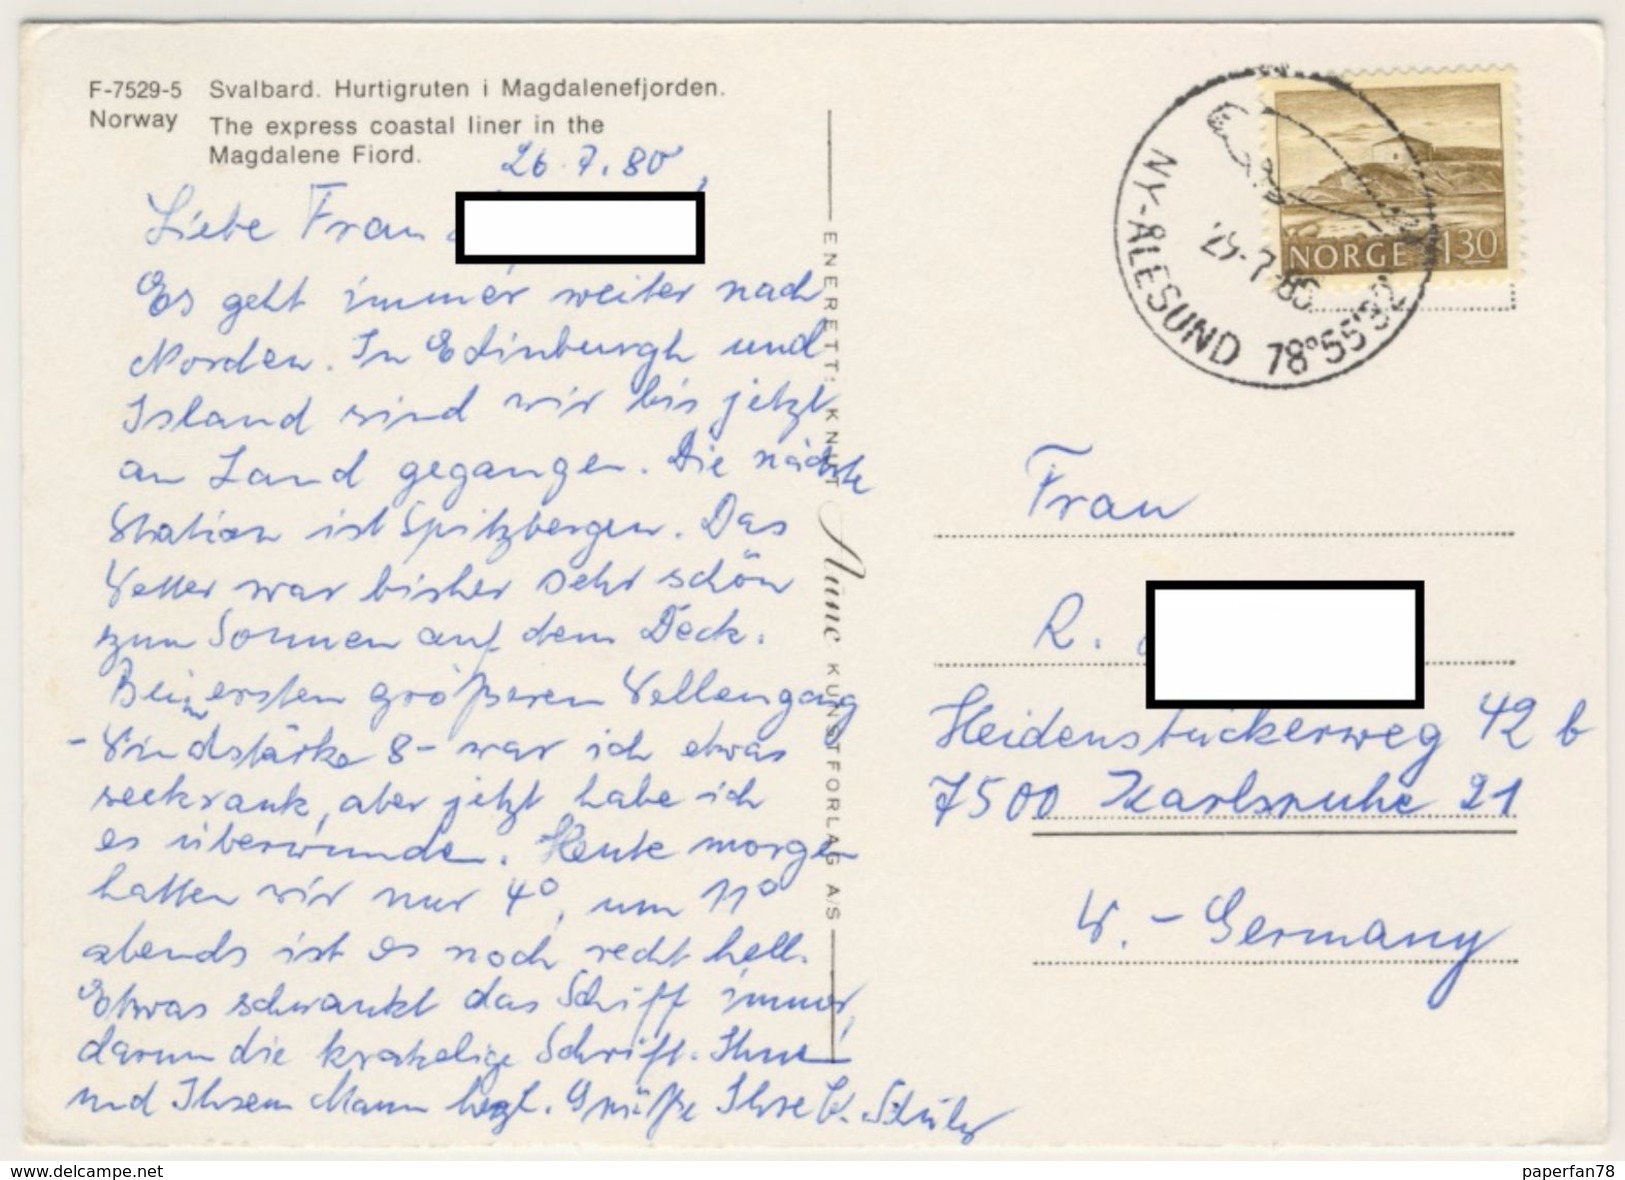 F-7529-5 Svalbard. Hurtigruten i Magdalenefjorden.
Norway The express coastal liner in the
Magdalene Fiord.
26.7.80
Liebe Frau
Es geht immer weiter nach
Norden. In Edinburgh und
Island sind wir bis jetzt
an Land gegangen. Die nächste
Station ist Spitzbergen. Das
Wetter war bisher sehr schön
zum Sonnen auf dem Deck.
Beim ersten größeren Wellengang
- Windstärke 8 - war ich etwas
seekrank, aber jetzt habe ich
es überwunden. Heute morgen
hatten wir nur 4°, um 11°
abends ist es noch recht hell.
Etwas schwankt das Schiff immer,
darum die krakelige Schrift. Ihnen
und Ihrem Mann herzl. Grüße Ihre
ENERETT: KNUT Aune KUNSTFORLAG A/S
NY-ÅLESUND 78°55'
NORGE 130
Frau
R.
Heidenstückerweg 42 b
7500 Karlsruhe 21
W.-Germany
www.delcampe.net
paperfan78